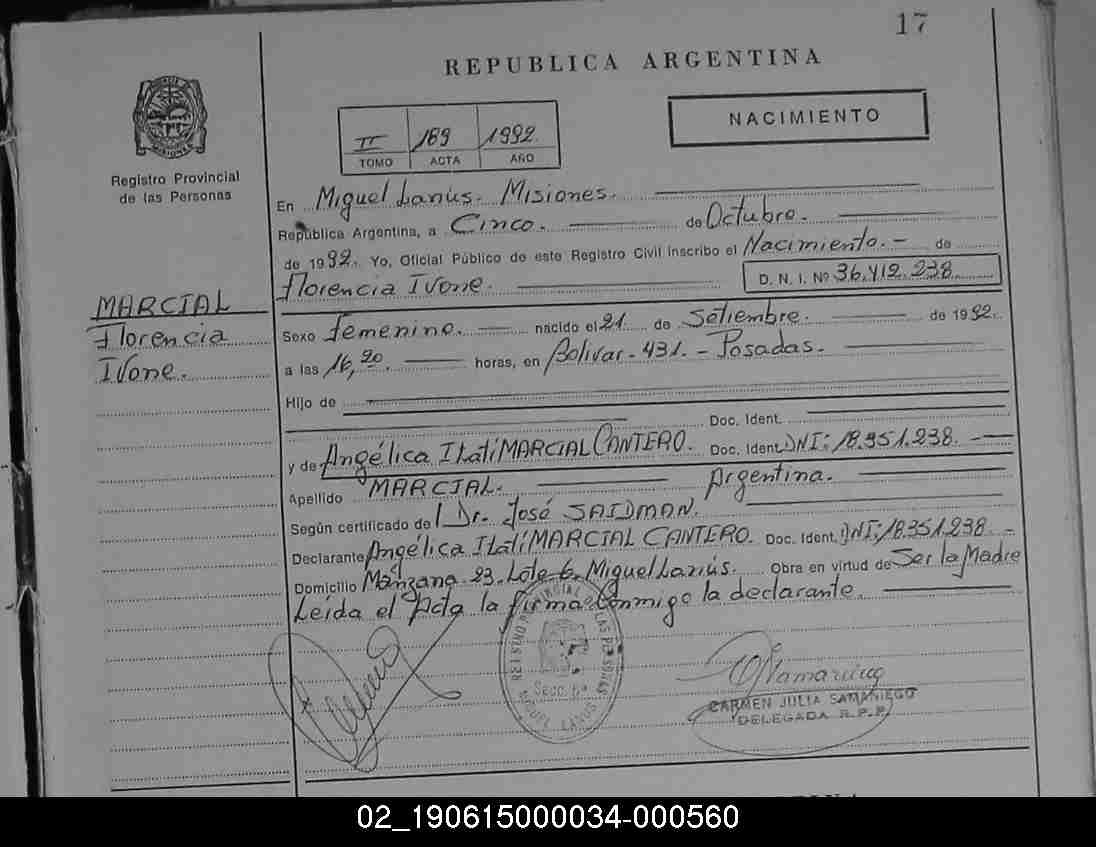 17
REPUBLICA ARGENTINA
NACIMIENTO
II 169 1992.
TOMO ACTA AÑO
MISIONES
Registro Provincial
de las Personas
En Miguel Lanús. Misiones.
República Argentina, a Cinco. de Octubre.
de 1992. Yo, Oficial Público de este Registro Civil inscribo el Nacimiento. - de
Florencia Ivone. D. N. I. Nº 36.412.238
MARCIAL
Florencia
Ivone.
Sexo femenino. nacido el 21 de Setiembre. de 1992.
a las 16,20. horas, en Bolivar - 431. - Posadas.
Hijo de
Doc. Ident.
y de Angélica Itatí MARCIAL CANTERO. Doc. Ident. DNI: 18.351.238.
Apellido MARCIAL. Argentina.
Según certificado del Dr. José SAIDMAN,
Declarante Angélica Itatí MARCIAL CANTERO. Doc. Ident. DNI: 18.351.238. -
Domicilio Manzana 23. Lote 6. Miguel Lanús. Obra en virtud de Ser la Madre
Leída el Acta la firma Conmigo la declarante.
REGISTRO PROVINCIAL DE LAS PERSONAS
Secc. 6ª
MIGUEL LANUS
CARMEN JULIA SAMANIEGO
DELEGADA R.P.P.
02_190615000034-000560